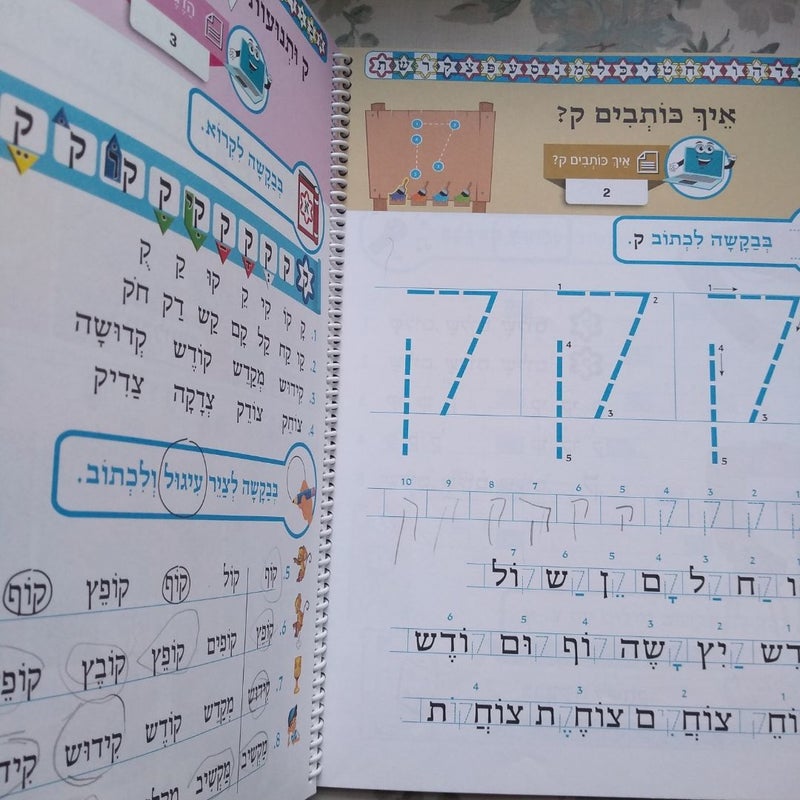 ד ה ו ז ח ט י כ ל מ נ ס ע פ צ ק ר ש ת
אֵיךְ כּוֹתְבִים ק?
אֵיךְ כּוֹתְבִים ק?
2
בְּבַקָשָׁה לִכְתוֹב ק.
1 2 3 4 5
1 3 4 5
2 3 4 5 6 7 8 9 10
2 3 4 5 6 7
וּ קַח קַל קָם קֵן קַשׁ קוֹל
1 2 3 4 5 6
קֹדֶשׁ קַיִץ קָשֶׁה קוֹף קוּם קוֹדֶשׁ
1 2 3 4
צוֹחֵק צוֹחֲקִים צוֹחֶקֶת צוֹחֲקוֹת
ק ותנועות
3
בְּבַקָשָׁה לִקְרוֹא.
ק ק ק ק ק ק ק ק ק
1. קָ קוֹ קִי קַ קוּ קֵ קֻ
2. קַו קַח קַל קָם קַשׁ דַק חֹק
3. קִידוּשׁ מִקְדָשׁ קוֹדֶשׁ קְדוּשָׁה
4. צוֹחֵק צוֹדֵק צְדָקָה צַדִיק
בְּבַקָשָׁה לְצַיֵר עִיגוּל וְלִכְתוֹב.
5. קוֹף קוֹל קוֹף קוֹפֵץ קוֹף
6. קוֹפֵץ קוֹפִים קוֹפֵץ קוֹבֵץ
7. קִידוּשׁ מִקְדָשׁ קוֹדֶשׁ קִידוּשׁ
8. מַקְשִׁיב מַקְשִׁיב